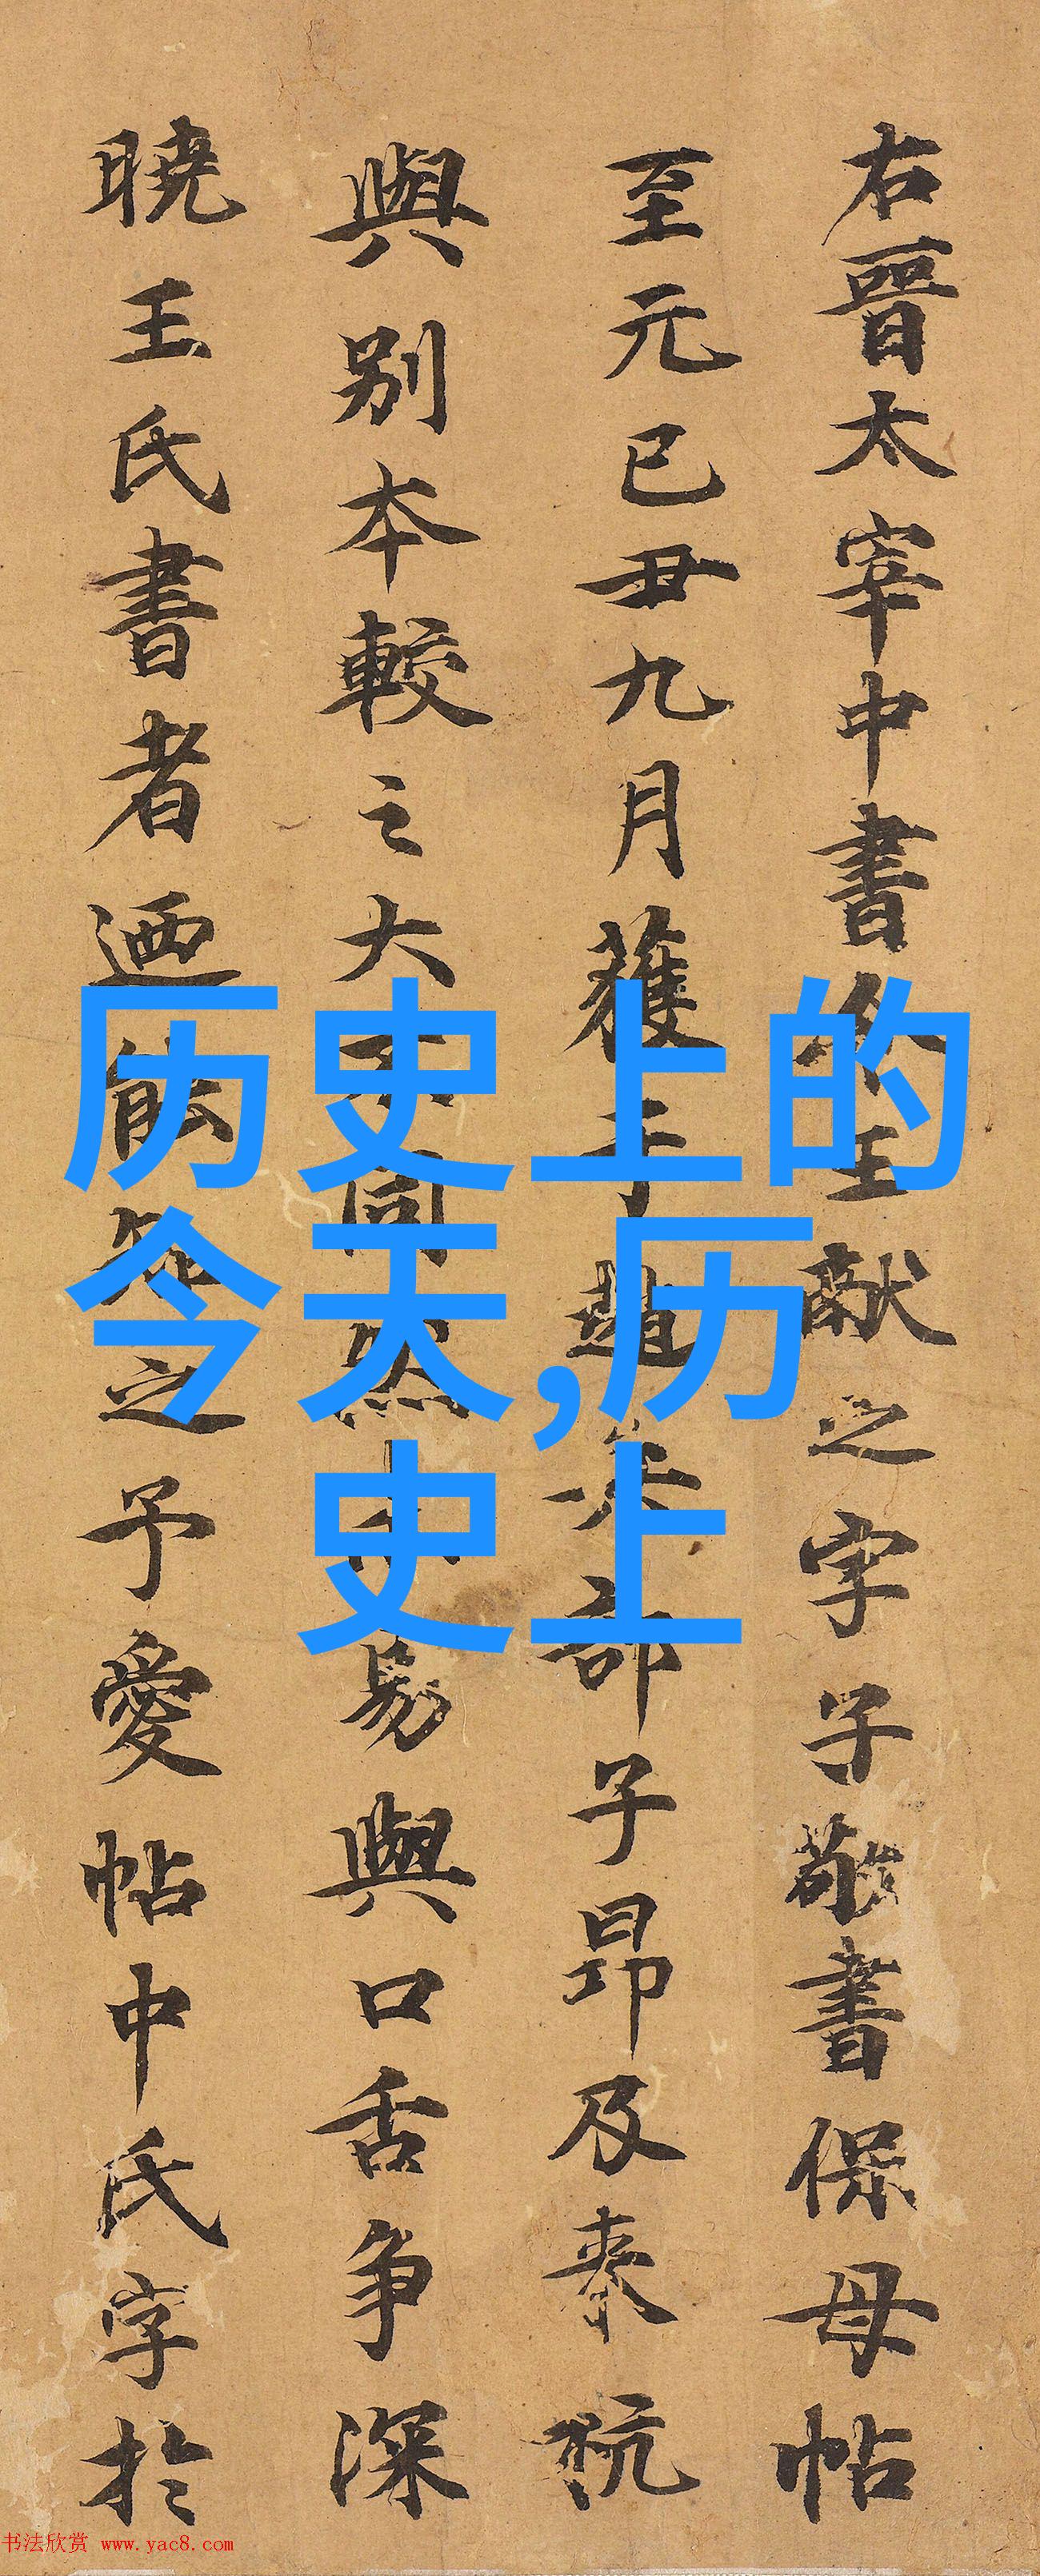 右晉太宰中書令王獻之字子敬書保母帖
至元己丑九月獲于趙兵部子昂及來杭
與別本較之大不同然未易與口舌爭深
曉王氏書者迺能知之予愛帖中氏字於
历史上的
今天,历
史上
书法欣赏 www.yac8.com